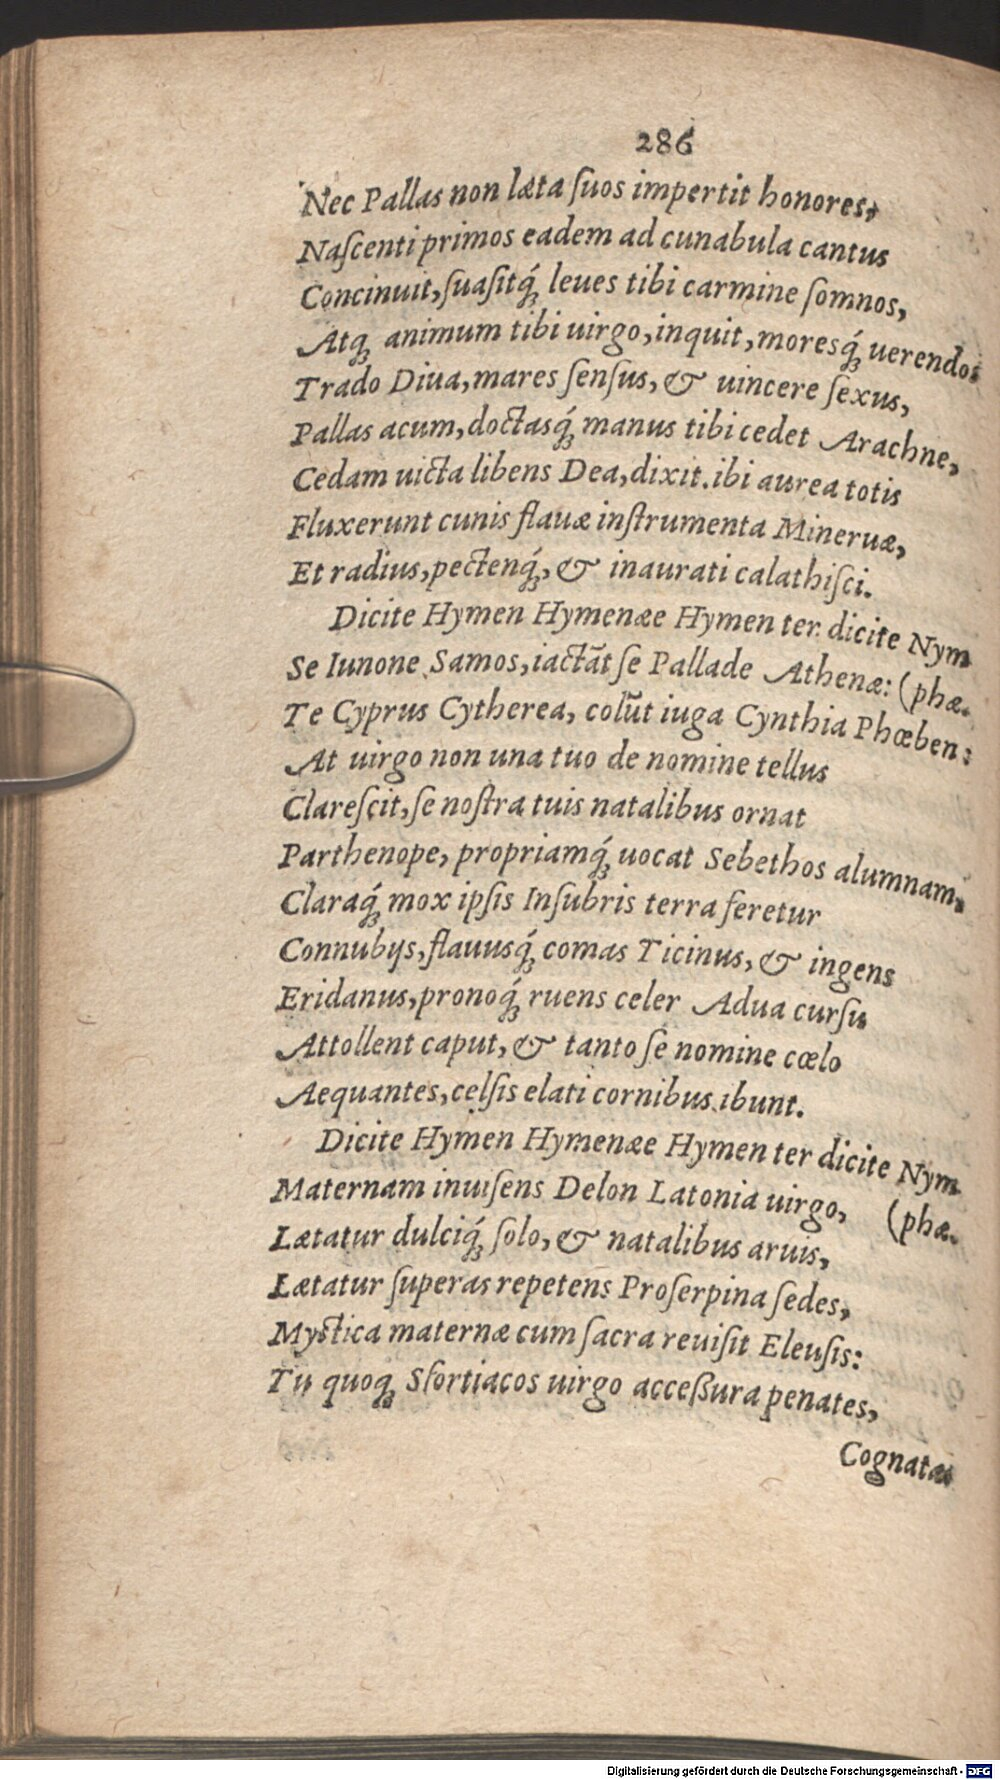 286
Nec Pallas non læta ſuos impertit honores,
Naſcenti primos eadem ad cunabula cantus
Concinuit, ſuaſitq́; leues tibi carmine ſomnos,
Atq; animum tibi uirgo, inquit, moresq́; uerendos
Trado Diua, mares ſenſus, & uincere ſexus,
Pallas acum, doctasq́; manus tibi cedet Arachne,
Cedam uicta libens Dea, dixit. ibi aurea totis
Fluxerunt cunis flauæ inſtrumenta Mineruæ,
Et radius, pectenq́;, & inaurati calathiſci.
Dicite Hymen Hymenæe Hymen ter dicite Nym
Se Iunone Samos, iactãt ſe Pallade Athenæ: (phæ.
Te Cyprus Cytherea, colũt iuga Cynthia Phœben:
At uirgo non una tuo de nomine tellus
Clareſcit, ſe noſtra tuis natalibus ornat
Parthenope, propriamq́; uocat Sebethos alumnam,
Claraq́; mox ipſis Inſubris terra feretur
Connubijs, flauusq́; comas Ticinus, & ingens
Eridanus, pronoq́; ruens celer Adua curſu
Attollent caput, & tanto ſe nomine cœlo
Aequantes, celſis elati cornibus ibunt.
Dicite Hymen Hymenæe Hymen ter dicite Nym
Maternam inuiſens Delon Latonia uirgo, (phæ.
Lætatur dulciq́; ſolo, & natalibus aruis,
Lætatur ſuperas repetens Proſerpina ſedes,
Myſtica maternæ cum ſacra reuiſit Eleuſis:
Tu quoq; Sfortiacos uirgo acceßura penates,
Cognatas
Digitalisierung gefördert durch die Deutsche Forschungsgemeinschaft - DFG